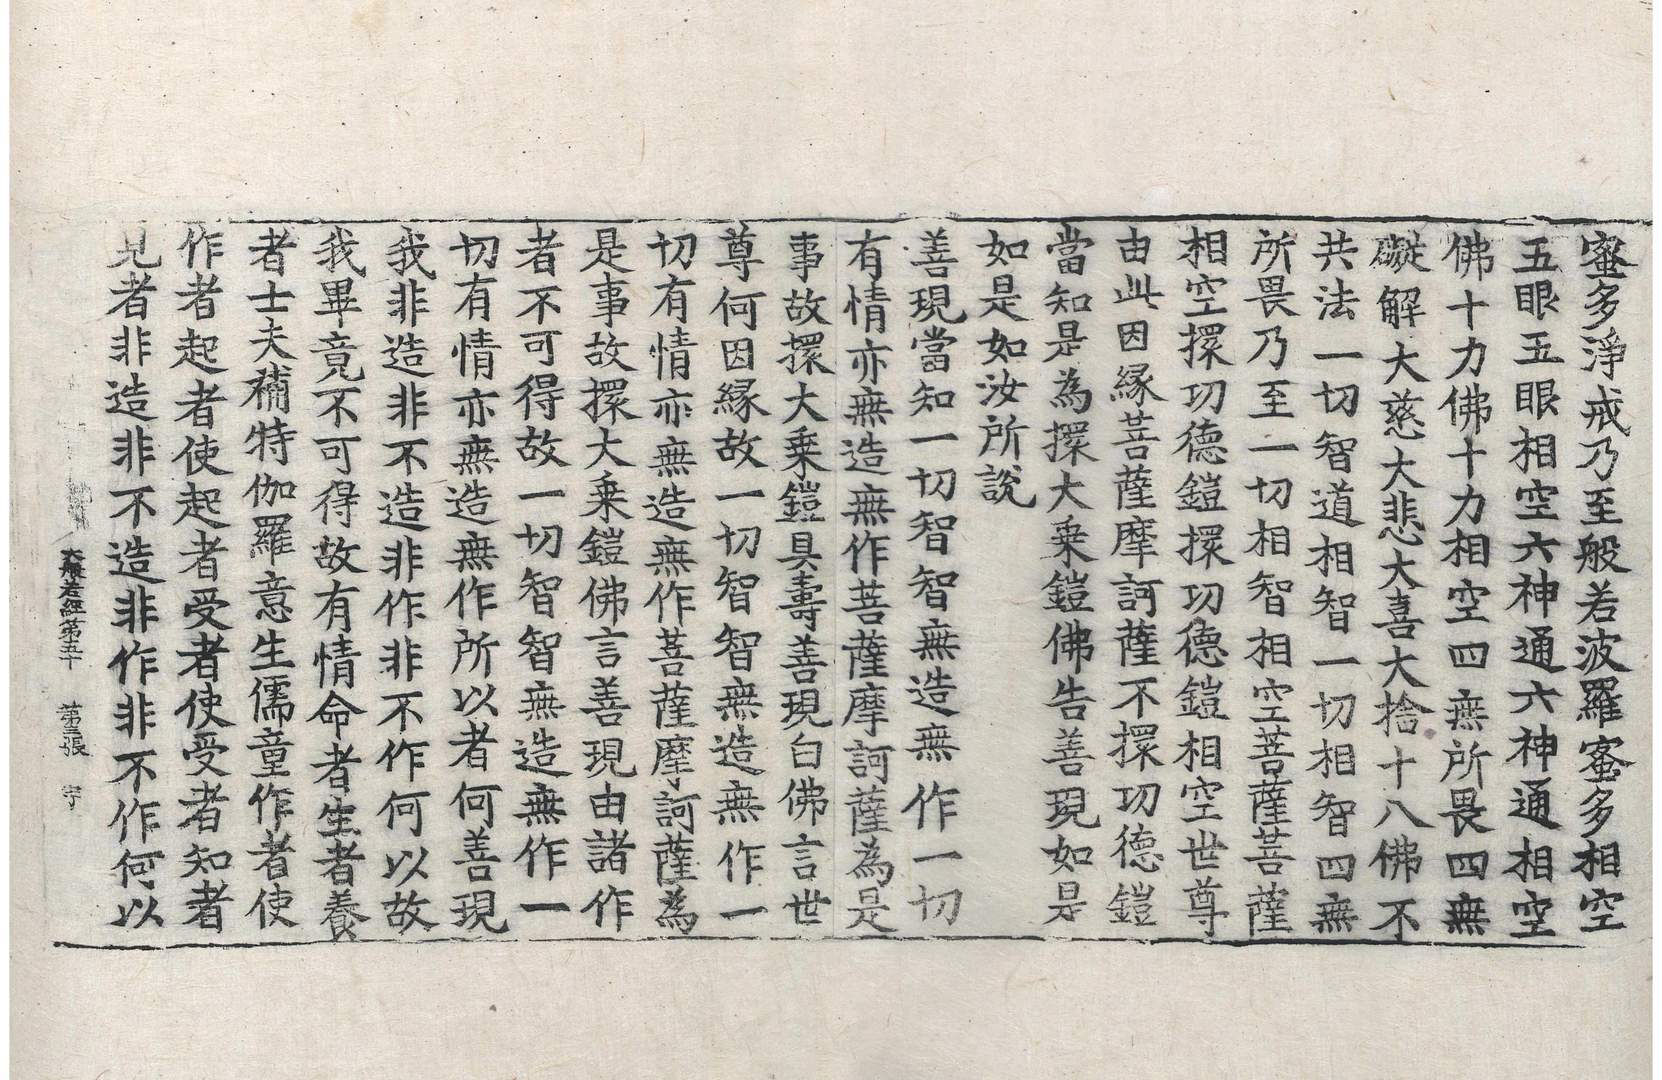 蜜多淨戒乃至般若波羅蜜多相空
五眼五眼相空六神通六神通相空
佛十力佛十力相空四無所畏四無
礙解大慈大悲大喜大捨十八佛不
共法一切智道相智一切相智四無
所畏乃至一切相智相空菩薩菩薩
相空擐功德鎧擐功德鎧相空世尊
由此因緣菩薩摩訶薩不擐功德鎧
當知是為擐大乗鎧佛告善現如是
如是如汝所說
善現當知一切智智無造無作一切
有情亦無造無作菩薩摩訶薩為是
事故擐大乗鎧具壽善現白佛言世
尊何因緣故一切智智無造無作一
切有情亦無造無作菩薩摩訶薩為
是事故擐大乗鎧佛言善現由諸作
者不可得故一切智智無造無作一
切有情亦無造無作所以者何善現
我非造非不造非作非不作何以故
我畢竟不可得故有情命者生者養
者士夫補特伽羅意生儒童作者使
作者起者使起者受者使受者知者
見者非造非不造非作非不作何以
大般若經第五十 第三張 宇